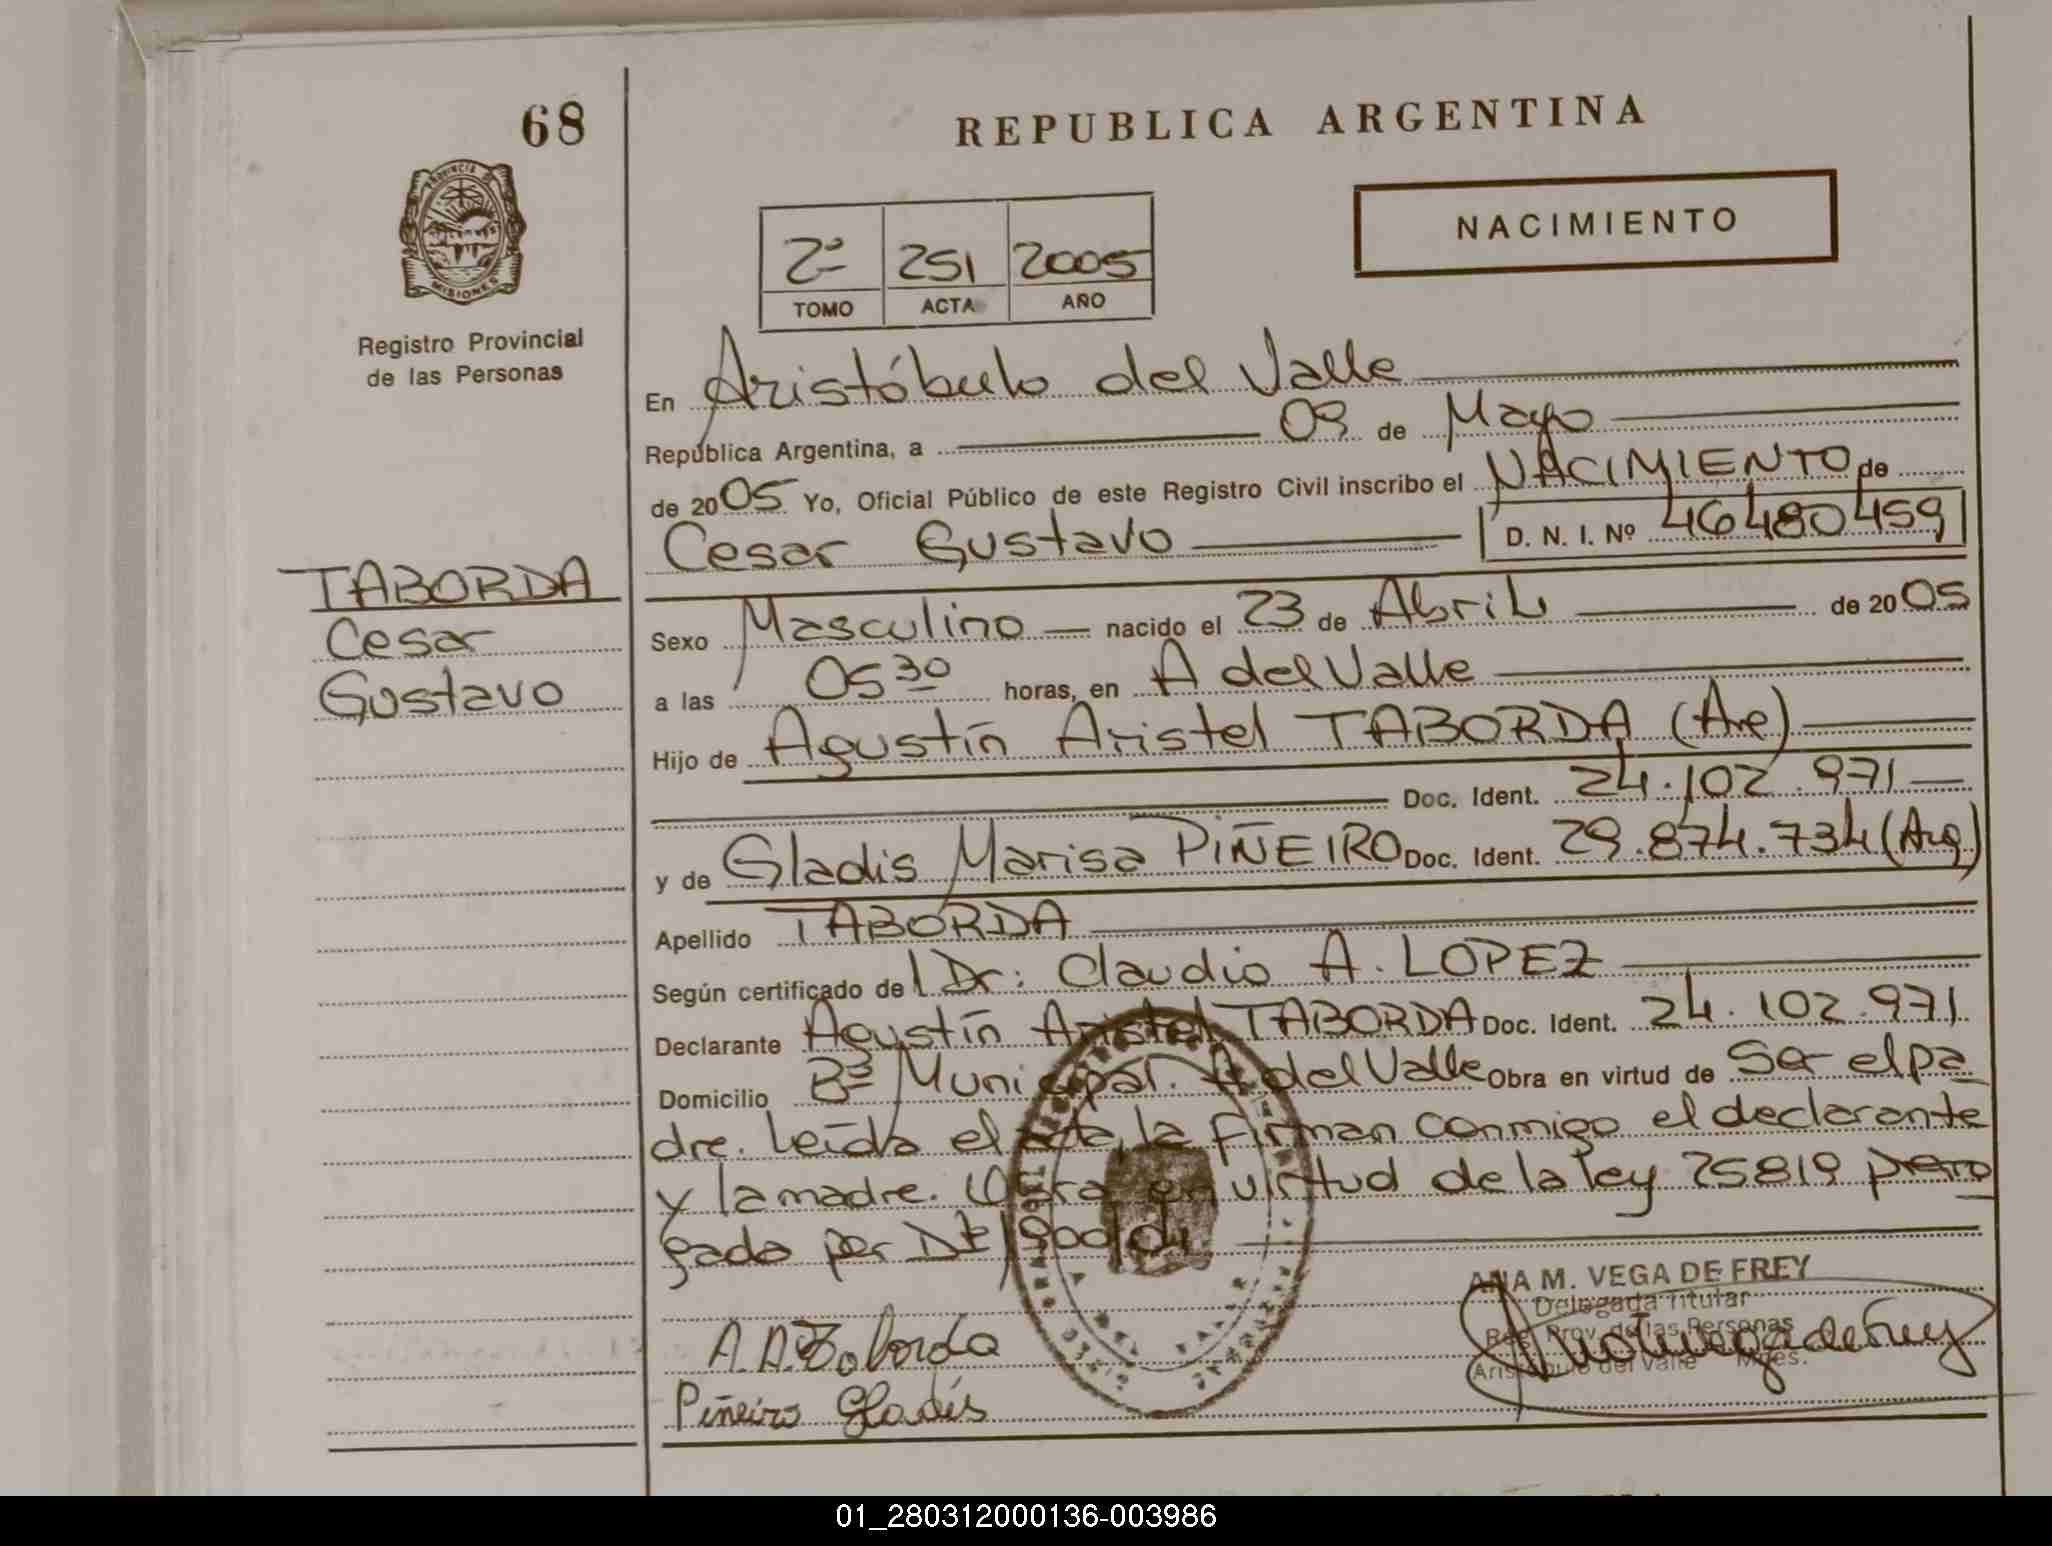 68
REPUBLICA ARGENTINA
PROVINCIA DE
MISIONES
NACIMIENTO
2º 251 2005
TOMO ACTA AÑO
Registro Provincial
de las Personas
TABORDA
Cesar
Gustavo
En Aristóbulo del Valle
República Argentina, a 09 de Mayo
de 2005 Yo, Oficial Público de este Registro Civil inscribo el NACIMIENTO de
Cesar Gustavo D. N. I. Nº 46480459
Sexo Masculino nacido el 23 de Abril de 2005
a las 05 30 horas, en A del Valle
Hijo de Agustín Aristel TABORDA (Arg)
Doc. Ident. 24.102.971
y de Gladis Marisa PIÑEIRO Doc. Ident. 29.874.734 (Arg)
Apellido TABORDA
Según certificado de Dr: Claudio A. LOPEZ
Declarante Agustín Aristel TABORDA Doc. Ident. 24.102.971
Domicilio Bº Municipal. A del Valle Obra en virtud de Ser el pa
dre. Leída el acta, la firman conmigo el declarante
y la madre. Obra en virtud de la ley 25819 prorro
gada por
A. A. Taborda
Piñeiro Gladis
ANA M. VEGA DE FREY
Delegada Titular
Reg. Prov. de las Personas
Aristóbulo del Valle Mnes.
01_280312000136-003986